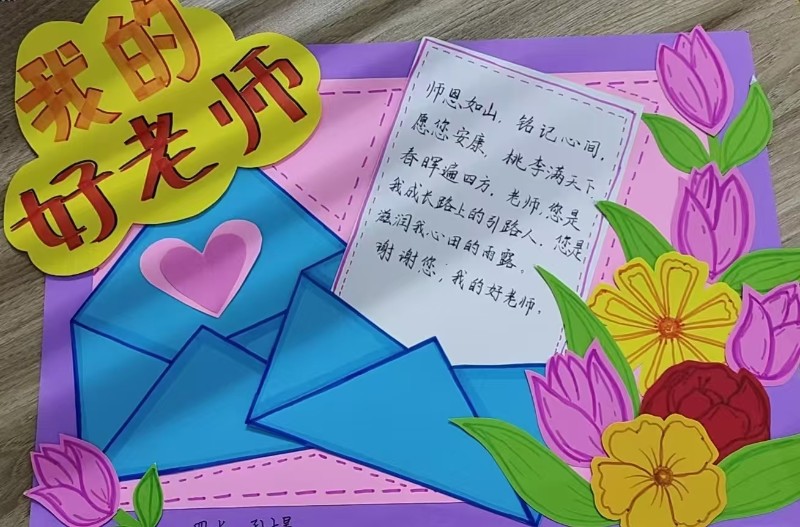 我的
好老师
师恩如山，铭记心间，
愿您安康，桃李满天下
春晖遍四方。老师，您是
我成长路上的引路人，您是
滋润我心田的雨露。
谢谢您，我的好老师，